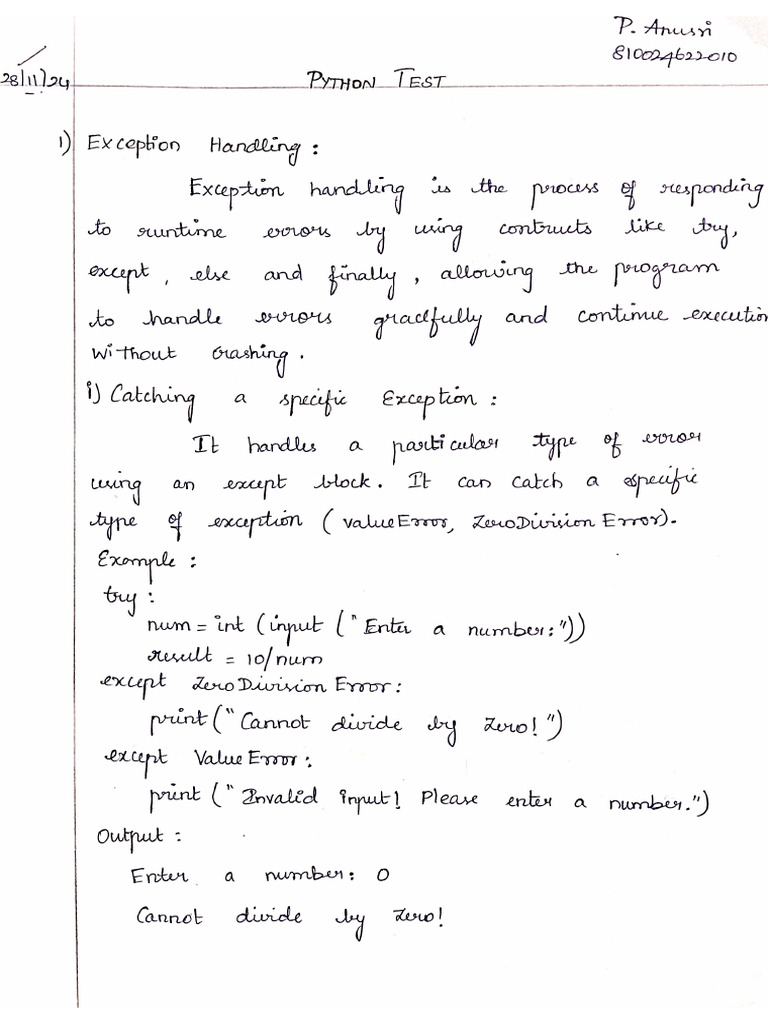 P. Anusri
810024622010
28/11/24
PYTHON TEST
1) Exception Handling :
Exception handling is the process of responding
to runtime errors by using contructs like try,
except, else and finally, allowing the program
to handle errors gracefully and continue execution
without crashing.
i) Catching a specific Exception :
It handles a particular type of error
using an except block. It can catch a specific
type of exception ( valueError, ZeroDivision Error).
Example :
try :
num = int (input ("Enter a number:"))
result = 10/num
except ZeroDivision Error :
print (" Cannot divide by Zero! ")
except Value Error :
print (" Invalid input! Please enter a number.")
Output :
Enter a number: 0
Cannot divide by Zero!